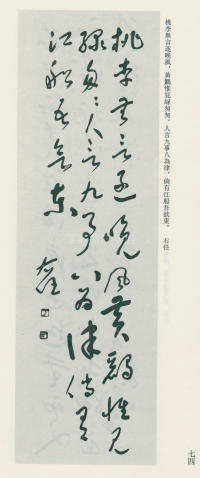 桃李無言逐晚風，黃鸝惟見綠匆匆。人言九事八為律，倘有江船吾欲東。　右任
桃李無言逐晚風黃鸝惟見
綠匆匆人言九事八為律倘有
江船吾欲東　右任
七四